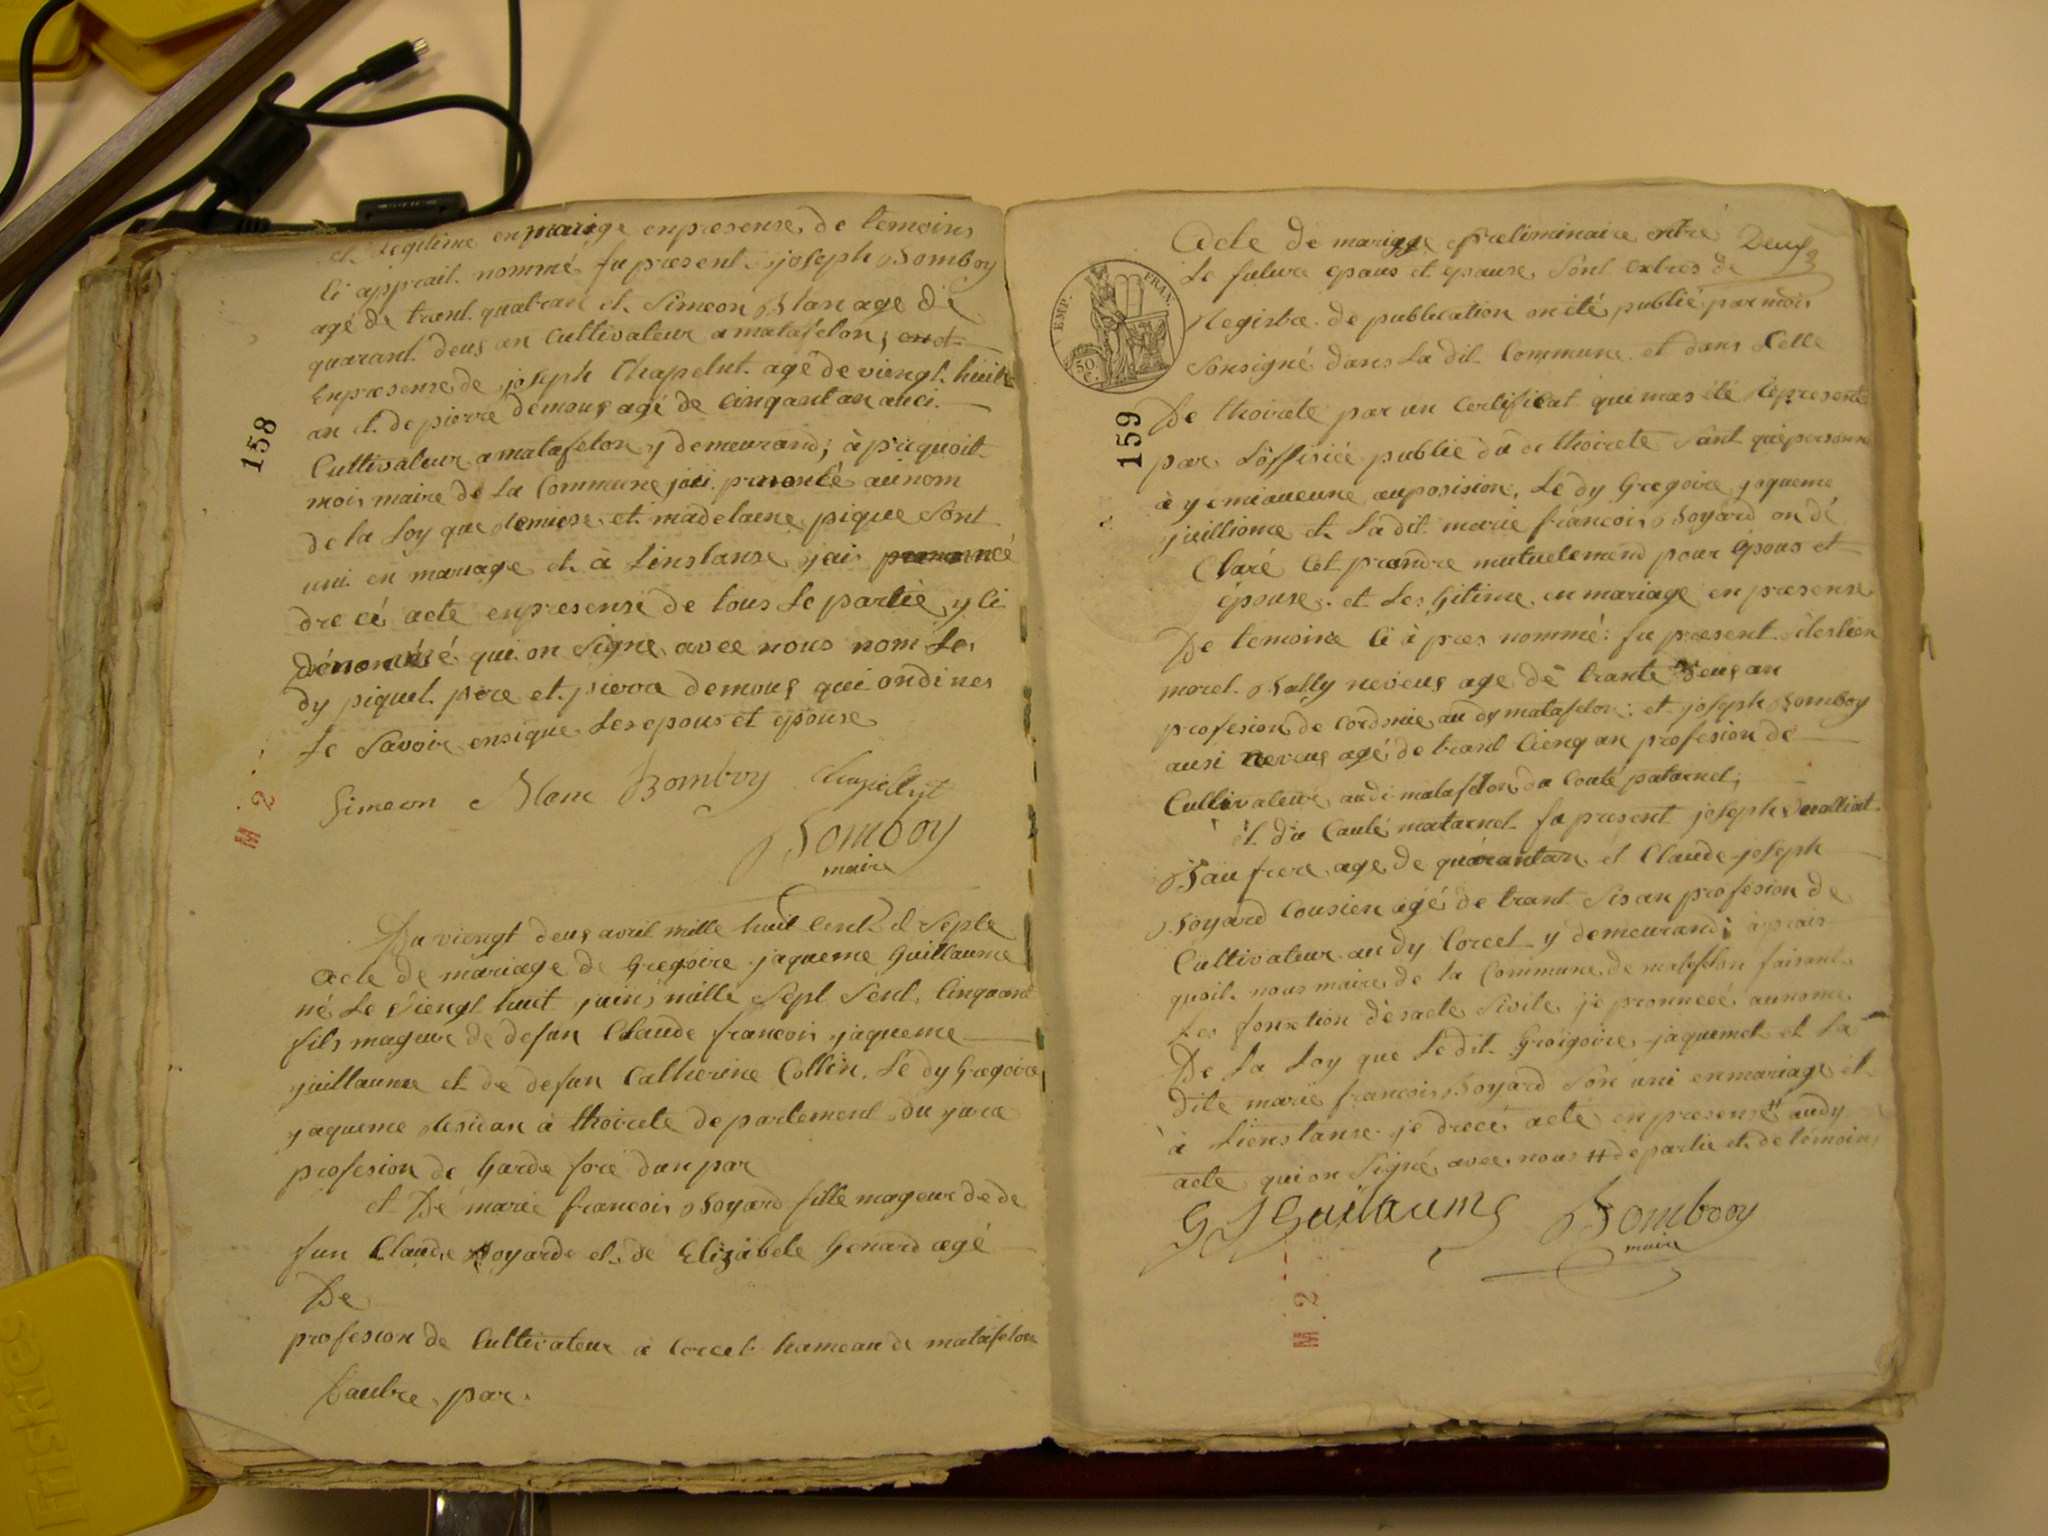 et legitime en mariage enpresense de temoins
Ci apprait nommé fu present joseph Bomboy
agé de trent quatran et Simeon Blan age de
quarant deus an Cultivateur a matafelon, endt
Enpresense de joseph Chapelut agé de viengt huit
an et de pierre demous agé de Cinqantan auci
Cultivateur a matafelon y demeurand; à pr
mois maire de la Commune jai prononcé au nom
de la Loy que et madelaene pique Sont
uni en mariage et à Linstanse jai
dre cé acte enpresense de tous Le partiè y ci
dénommé qui on Signe avec nous nom Le
dy piquet père et pierre demous qui ondi nes
Le Savoir ensique Les epous et epouse
Simeon Blanc Bomboy Chapelut
Bomboy
maire
Du viengt deus avril mille huit Cent et Septe
acte de mariage de Gregoire jaqueme Guillaume
né Le viengt huit juin mille Sept Sent Cinquant
fils mageur de defun Claude francois jaqueme
juillaume et de defun Catherine Collin, Le dy Gregoire
jaqueme desidan à thoirete departement du jura
profesion de Garde foré dun par
et De marie francois Boyard fille mageur de de
fun Claude Boyarde et de Elizabete Genard agé
De
profesion de Cultivateur a Corcel hameau de matafelon
Dautre par.
158
M 2
Acte de mariage preliminaire entré
Deus
Le future epous et epouse Sont extres de
Registre de publication on été publié par mois
Sousigné dans La dit Commune et dans Celle
De thoirete par un Certificat qui mas été represente
par Loffisiée publie du de thoirete Sant que personne
à y emi aucune auposision, Le dy Gregoire jaqueme
juillionme et La dit marie francois Boyard on dé
Claré Cet prandre mutuelemend pour epous et
épouse et Les Gitime en mariage en presense
De temoins Ci à pres nommé: fu present
morel Bally neveus age de trante deus an
profesion de cordonie au dy matafelon; et joseph Bomboy
ausi neveus agé de trant Cienq an profesion de
Cultivateur audi matafelon du Couté paternel;
et du Couté maternel fu present joseph
Bau frere age de quarantan et Claude joseph
Boyard Cousien agé de trant Sis an profesion de
Cultivateur au dy Corcel y demeurand; à prais
quoit nous maire de la Commune de matafelon faisant
Les fonxtion dèsacte Sivile je pronnecé aunome
De La Loy que Ledit Groigoire jaquemet et La
Dite marie francois Boyard Son uni enmariage et
à Lienstanse je drecé acte enpresense # audy
acte qui on Signé avec nous # de partie et de témoins
G J Guilaume Bomboy
maire
EMP. FRAN.
50 C.
159
M 2
Fiskies